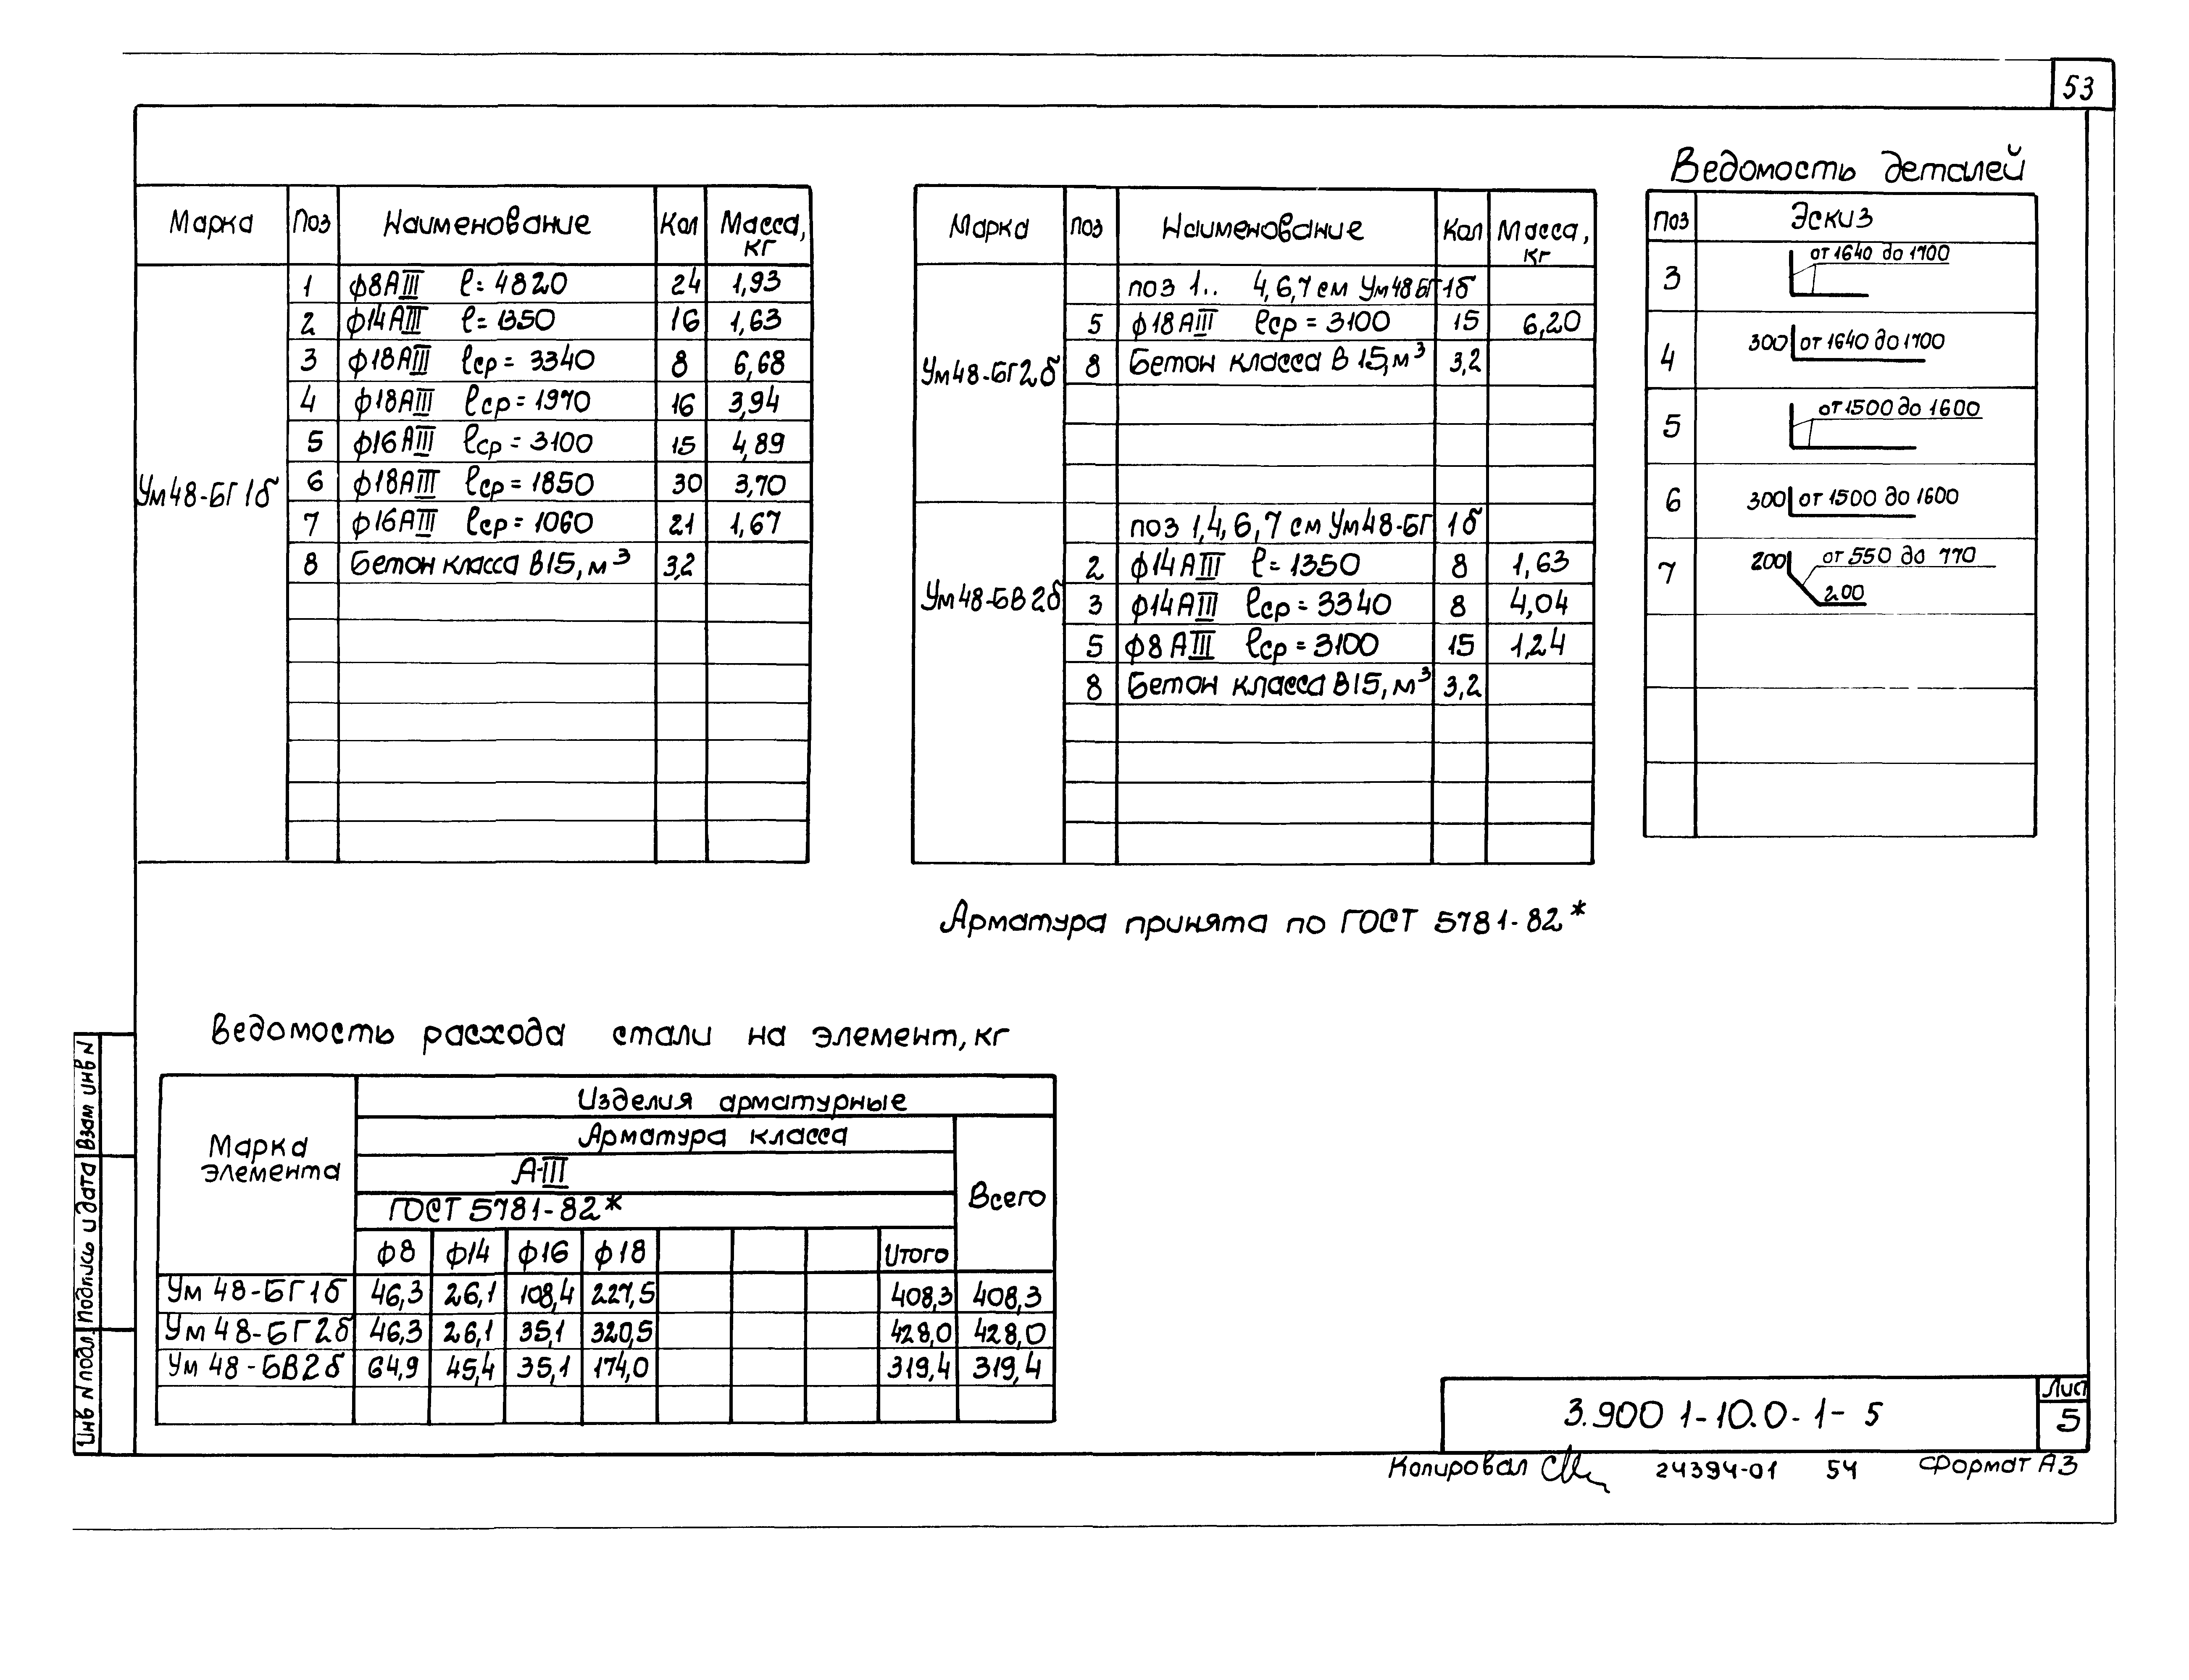 53
Марка Поз Наименование Кол Масса, кг
Ум48-БГ1б
1 ф8АIII ℓ=4820 24 1,93
2 ф14АIII ℓ=1350 16 1,63
3 ф18АIII ℓср=3340 8 6,68
4 ф18АIII ℓср=1970 16 3,94
5 ф16АIII ℓср=3100 15 4,89
6 ф18АIII ℓср=1850 30 3,70
7 ф16АIII ℓср=1060 21 1,67
8 Бетон класса В15, м³ 3,2
Марка поз Наименование Кол Масса, кг
Ум48-БГ2б
поз 1.. 4,6,7 см Ум48БГ1б
5 ф18АIII ℓср=3100 15 6,20
8 Бетон класса В 15, м³ 3,2
Ум48-БВ2б
поз 1,4,6,7 см Ум48-БГ 1б
2 ф14АIII ℓ=1350 8 1,63
3 ф14АIII ℓср=3340 8 4,04
5 ф8АIII ℓср=3100 15 1,24
8 Бетон класса В15, м³ 3,2
Ведомость деталей
Поз Эскиз
3 от 1640 до 1700
4 300 от 1640 до 1700
5 от 1500 до 1600
6 300 от 1500 до 1600
7 200 от 550 до 770
200
Арматура принята по ГОСТ 5781-82*
Ведомость расхода стали на элемент, кг
Марка элемента
Изделия арматурные
Арматура класса
А-III
ГОСТ 5781-82*
Всего
ф8 ф14 ф16 ф18 Итого
Ум 48-БГ1б 46,3 26,1 108,4 227,5 408,3 408,3
Ум 48-БГ2б 46,3 26,1 35,1 320,5 428,0 428,0
Ум 48-БВ2б 64,9 45,4 35,1 174,0 319,4 319,4
Инв N подл. Подпись и дата Взам инв N
3.900 1-10.0-1-5
Лист
5
Копировал 24394-01 54 Формат А3